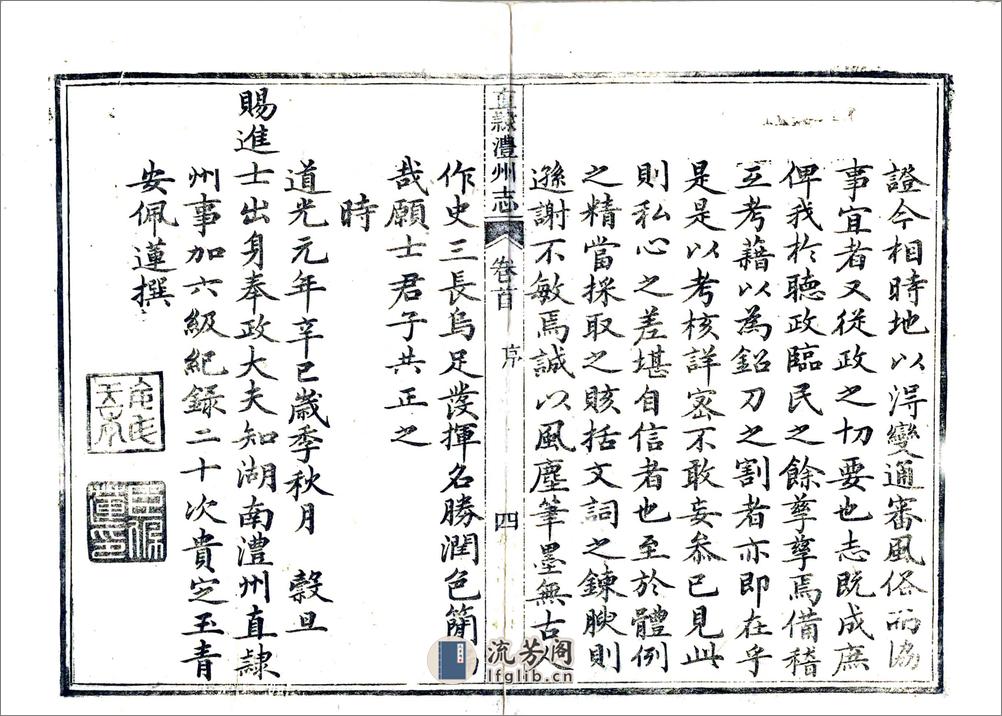 證今相時地以得變通審風俗而協
事宜者又從政之切要也志既成庶
俾我於聽政臨民之餘孳孳焉備稽
互考藉以為鉛刀之割者亦即在乎
是是以考核詳密不敢妄叅已見此
則私心之差堪自信者也至於體例
之精當採取之賅括文詞之鍊腴則
遜謝不敏焉誠以風塵筆墨無古人
直隸澧州志 卷首 序 四
作史三長烏足發揮名勝潤色簡
哉願士君子共正之
時
道光元年辛巳歲季秋月 穀旦
賜進士出身奉政大夫知湖南澧州直隸
州事加六級紀錄二十次貴定玉青
安佩蓮撰
流芳阁
lfglib.cn